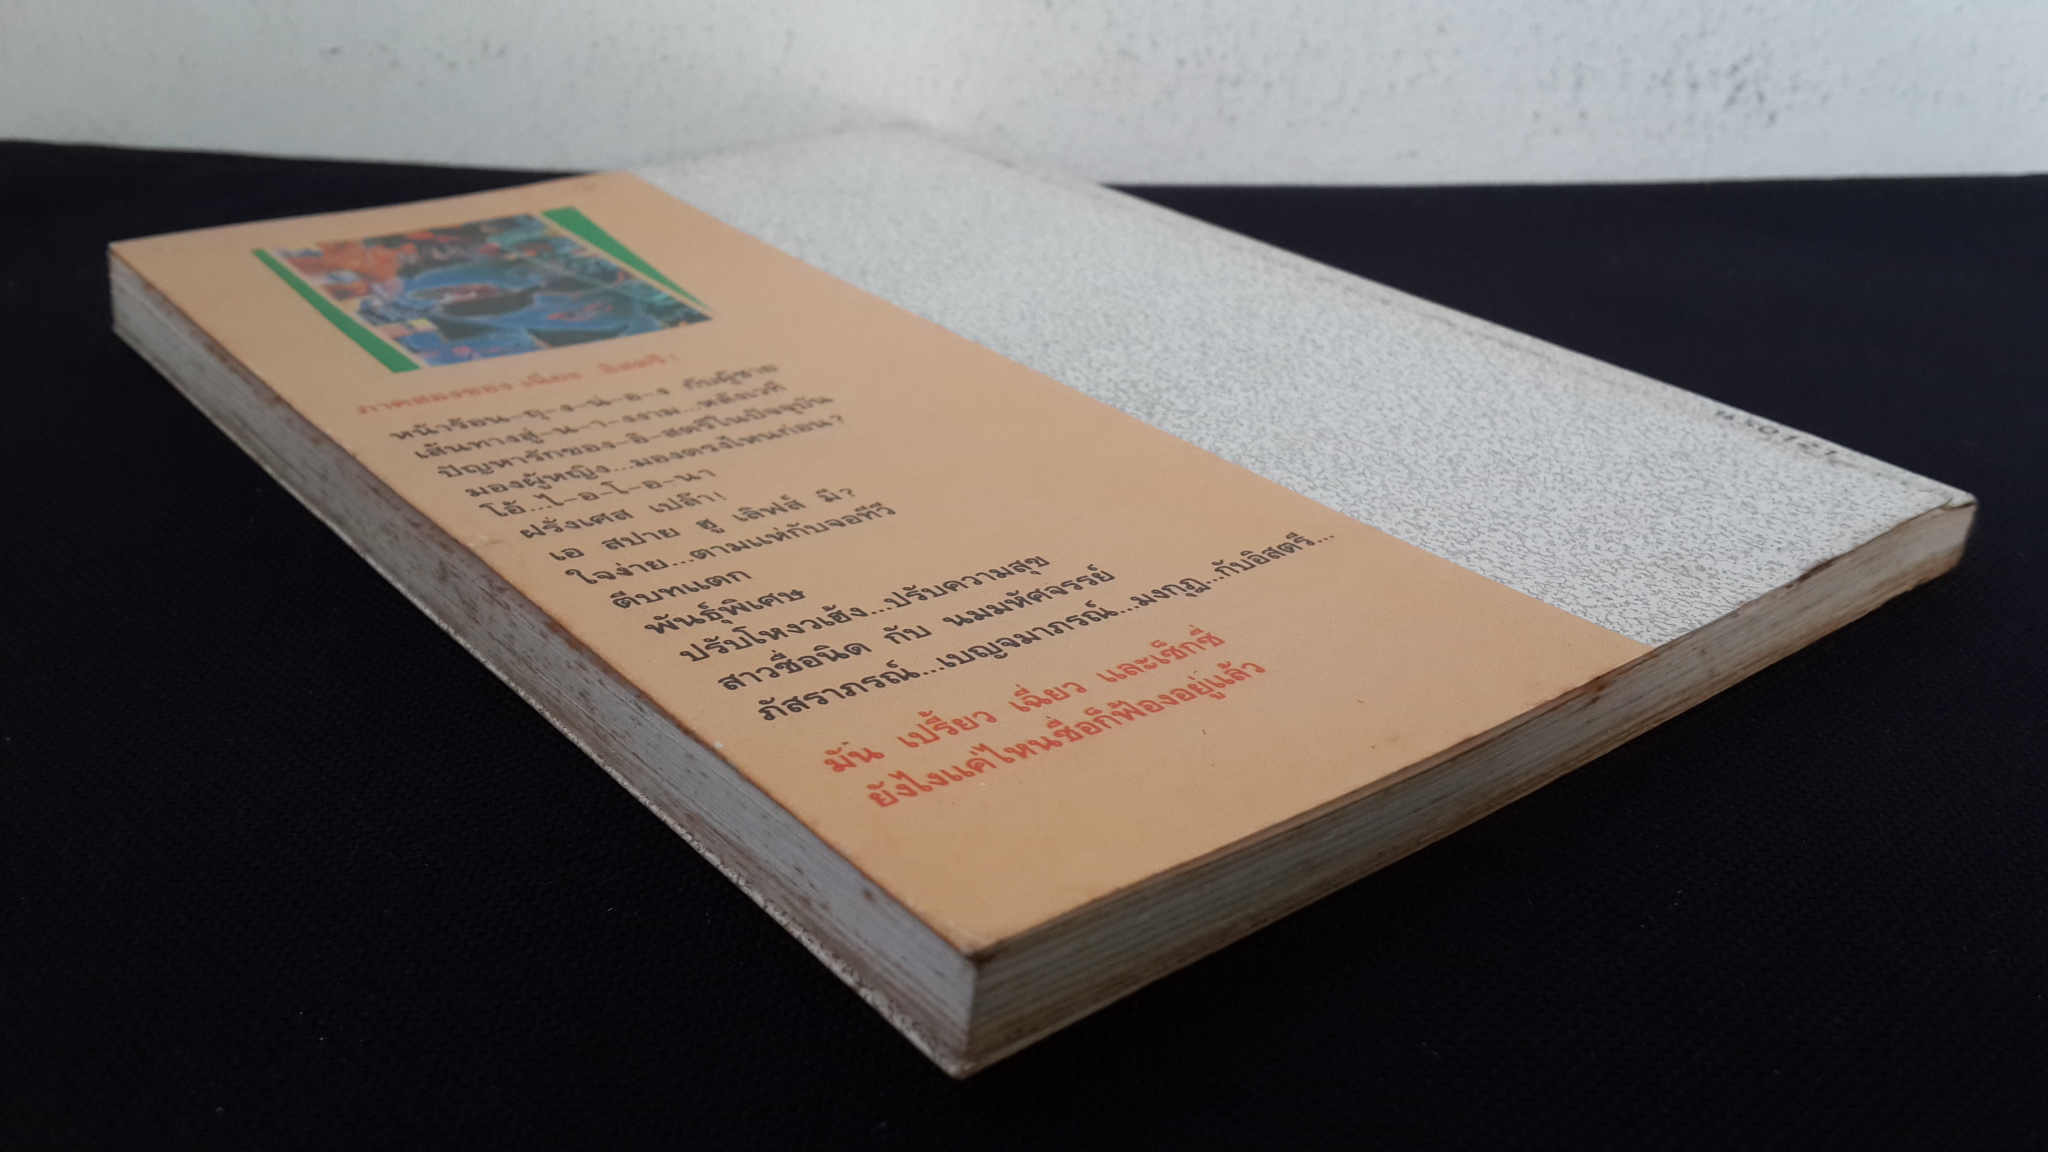 ภาคสองของ เฉี่ยว...อิสตรี!
หน้าร้อน-ถุ-ง-น่-อ-ง กับผู้ชาย
เส้นทางสู่-น-า-งงาม...หลังเวที
ปัญหารักของ-อิ-สตรีในปัจจุบัน
มองผู้หญิง...มองตรงไหนก่อน?
โอ้...ไ-อ-โ-อ-นา
ฝรั่งเศส เปล้า!
เอ สปาย ฮู เลิฟส์ มี?
ใจง่าย...ตามแห่กับจอทีวี
ตีบทแตก
พันธุ์พิเศษ
ปรับโหงวเฮ้ง...ปรับความสุข
สาวชื่อนิด กับ นมมหัศจรรย์
ภัสราภรณ์...เบญจมาภรณ์...มงกุฎ...กับอิสตรี...
มัน เปรี้ยว เฉี่ยว และเซ็กซี่
ยังไงแค่ไหนชื่อก็ฟ้องอยู่แล้ว